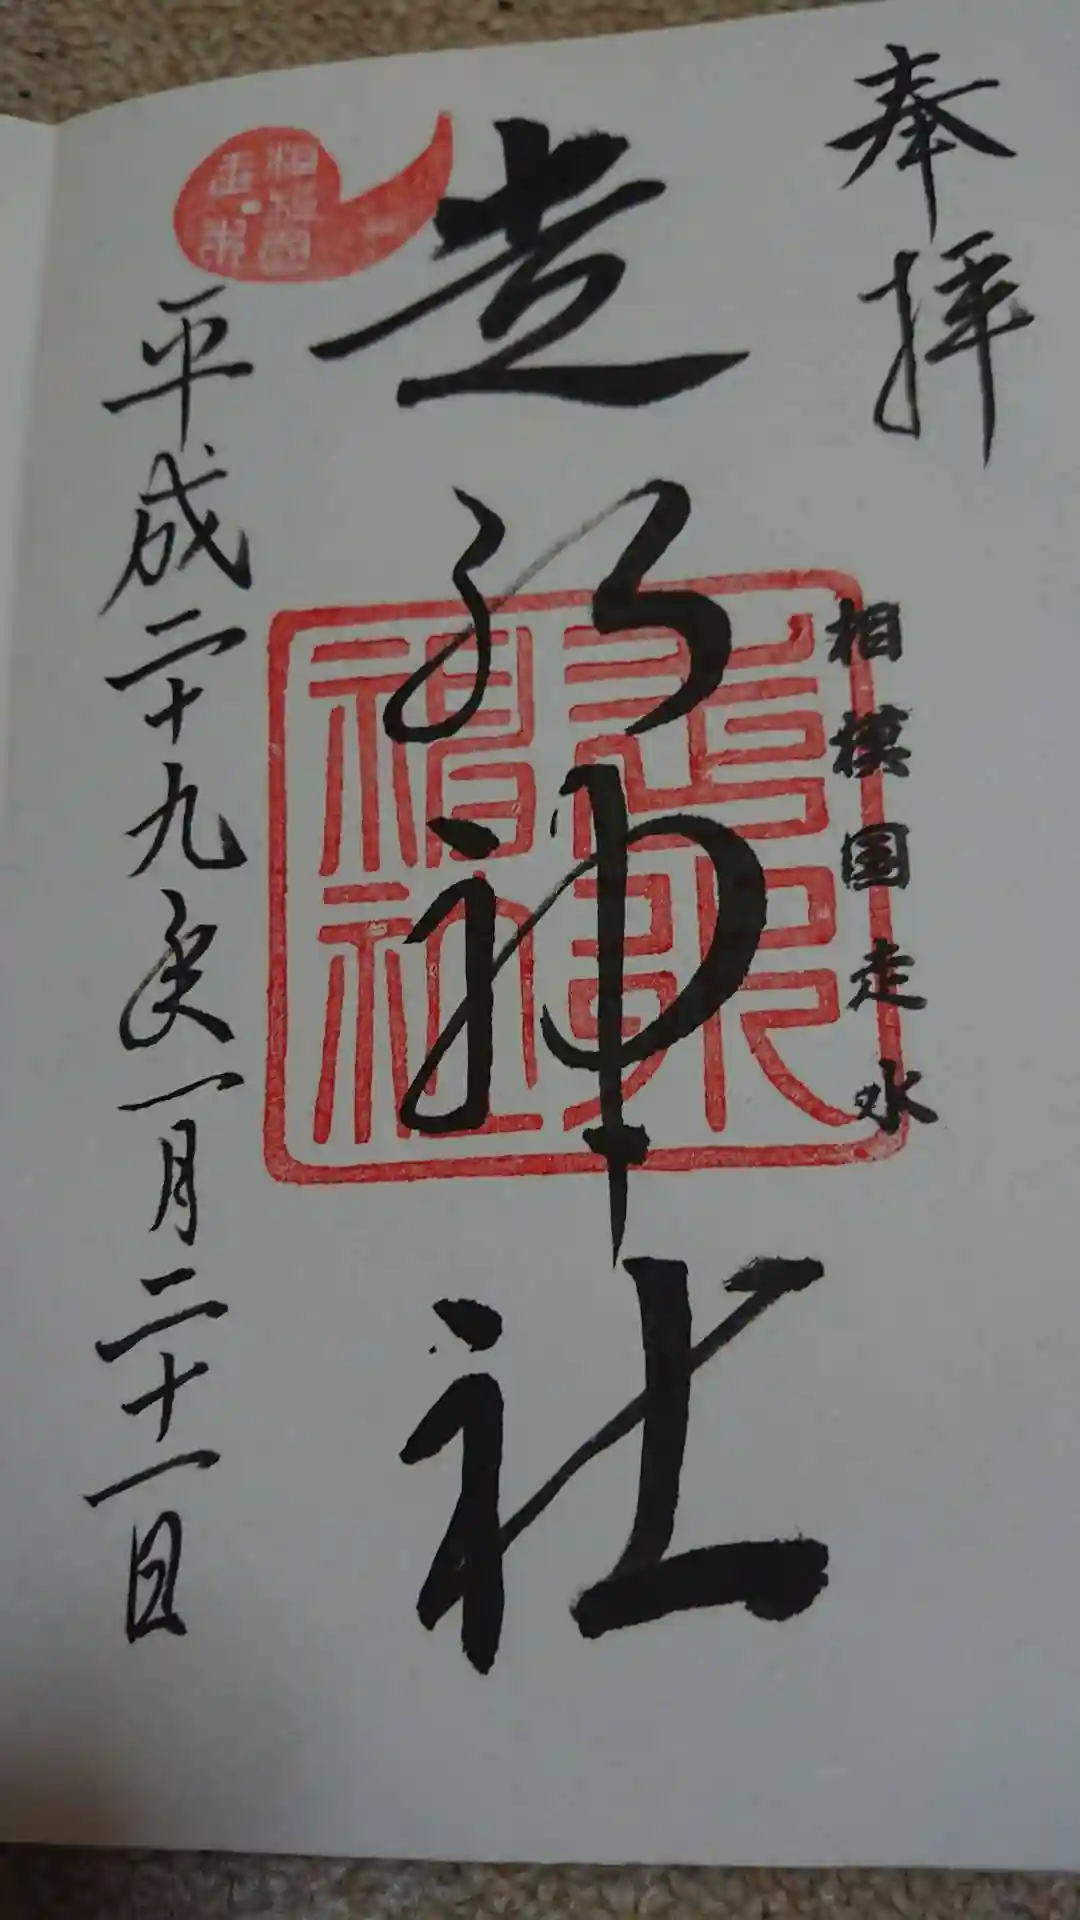 奉拝
相模国走水
走水神社
走水神社
平成二十九年一月二十一日
相模国